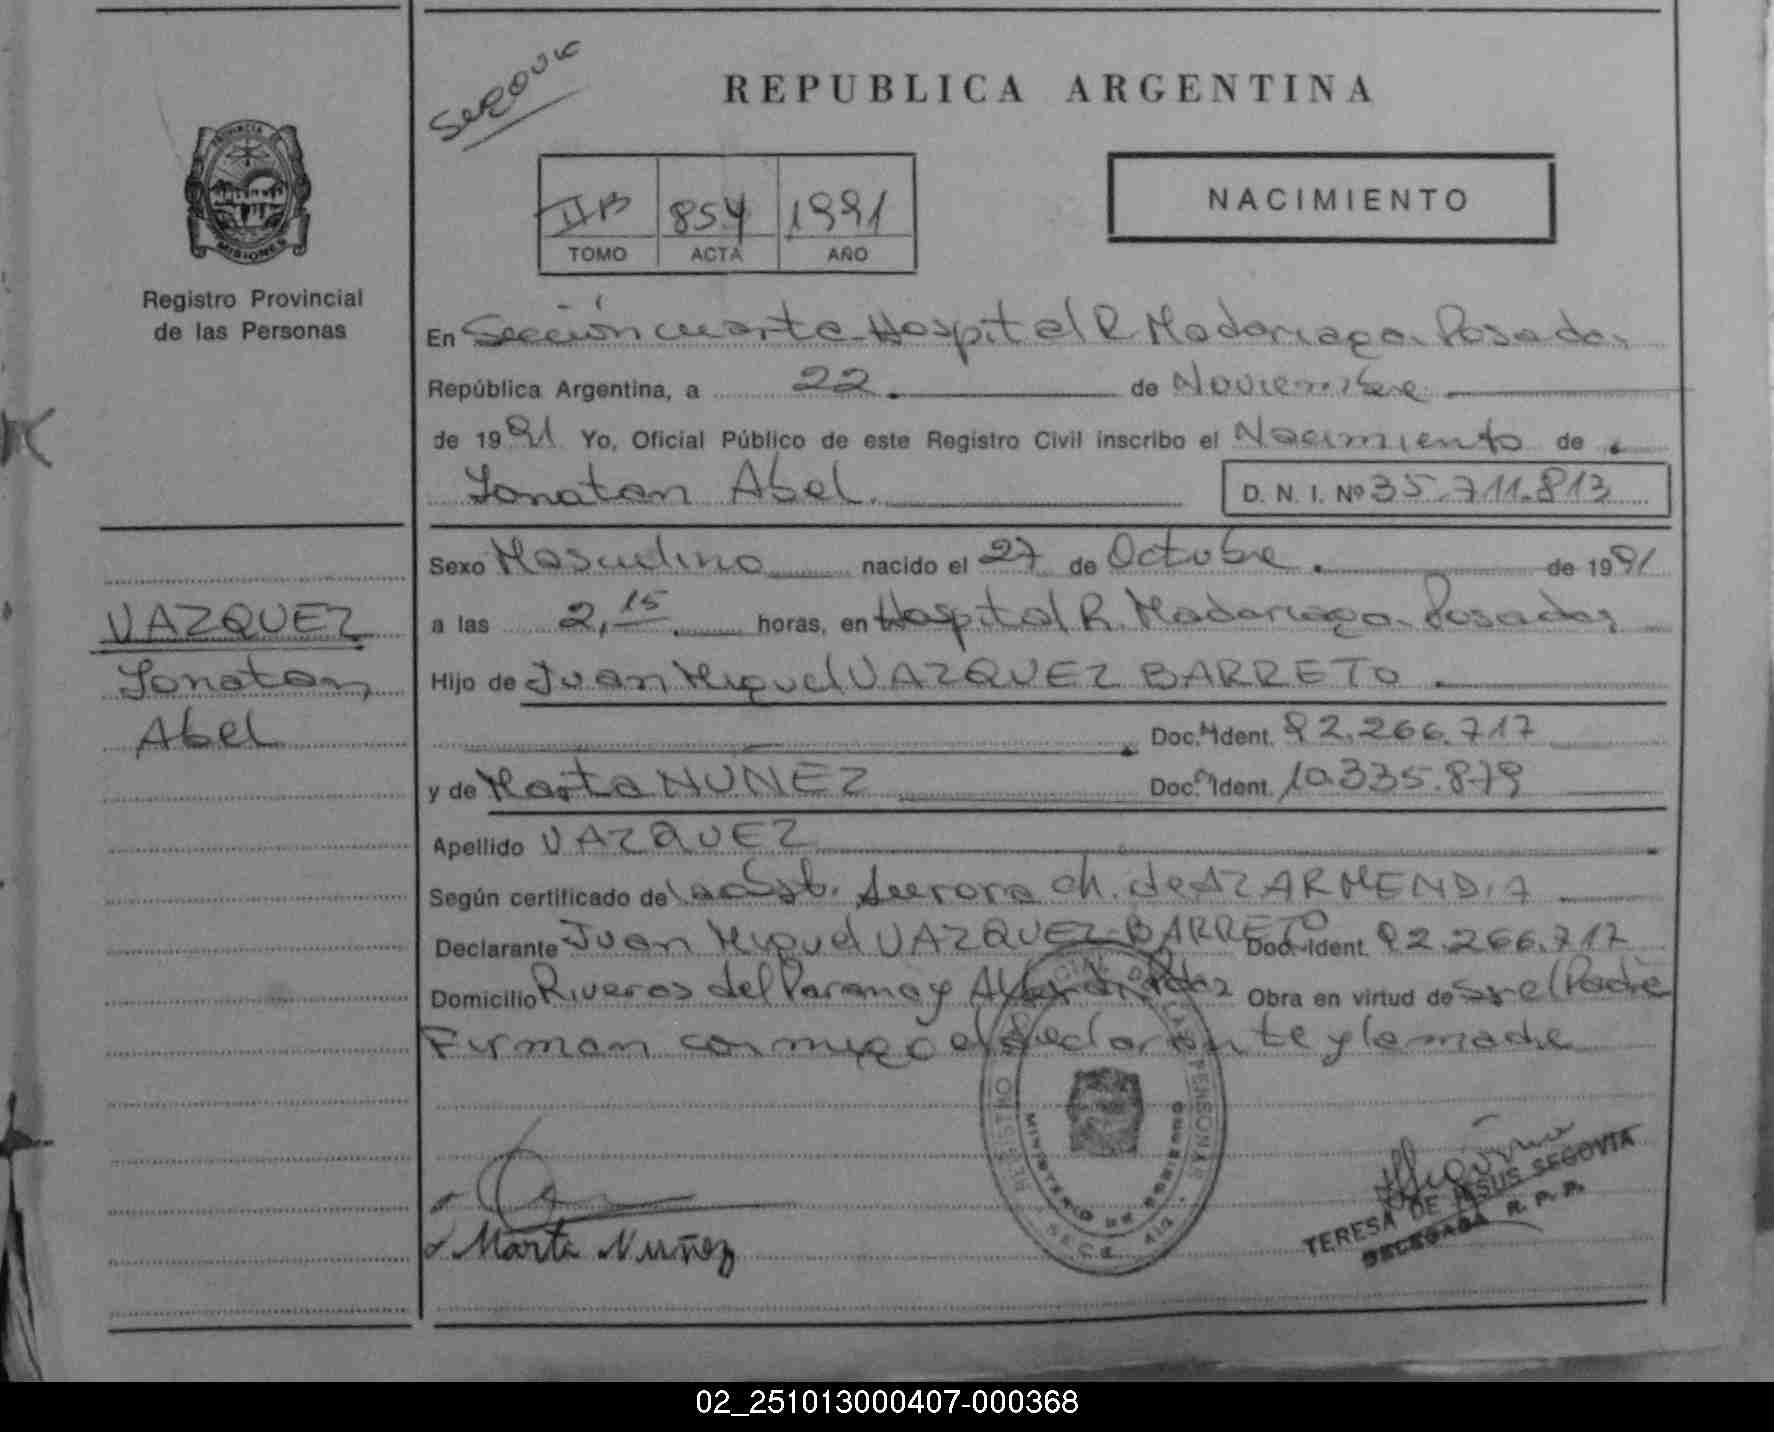 SEGOVIA
REPUBLICA ARGENTINA
PROVINCIA
MISIONES
IIB 854 1991
TOMO ACTA AÑO
NACIMIENTO
Registro Provincial
de las Personas
En Sección cuarta-Hospital R. Madariaga. Posadas
República Argentina, a 22 de Noviembre
de 1991 Yo, Oficial Público de este Registro Civil inscribo el Nacimiento de
Jonatan Abel. D. N. I. Nº 35.711.813
Sexo Masculino nacido el 27 de Octubre. de 1991
VAZQUEZ
Jonatan,
Abel
a las 2,15 horas, en Hospital R. Madariaga. Posadas
Hijo de Juan Miguel VAZQUEZ BARRETO
Doc. Ident. 92.266.717
y de Marta NUÑEZ Doc. Ident. 10.335.879
Apellido VAZQUEZ
Según certificado de la Obst. Aurora Ch. de AZARMENDIA
Declarante Juan Miguel VAZQUEZ-BARRETO Doc. Ident. 92.266.717
Domicilio Riveras del Parana y Pdas Obra en virtud de ser el Padre
Firman conmigo el declarante y la madre
MINISTERIO DE GOBIERNO
Marta Nuñez
TERESA DE JESUS SEGOVIA
DELEGADA R. P. P.
02_251013000407-000368